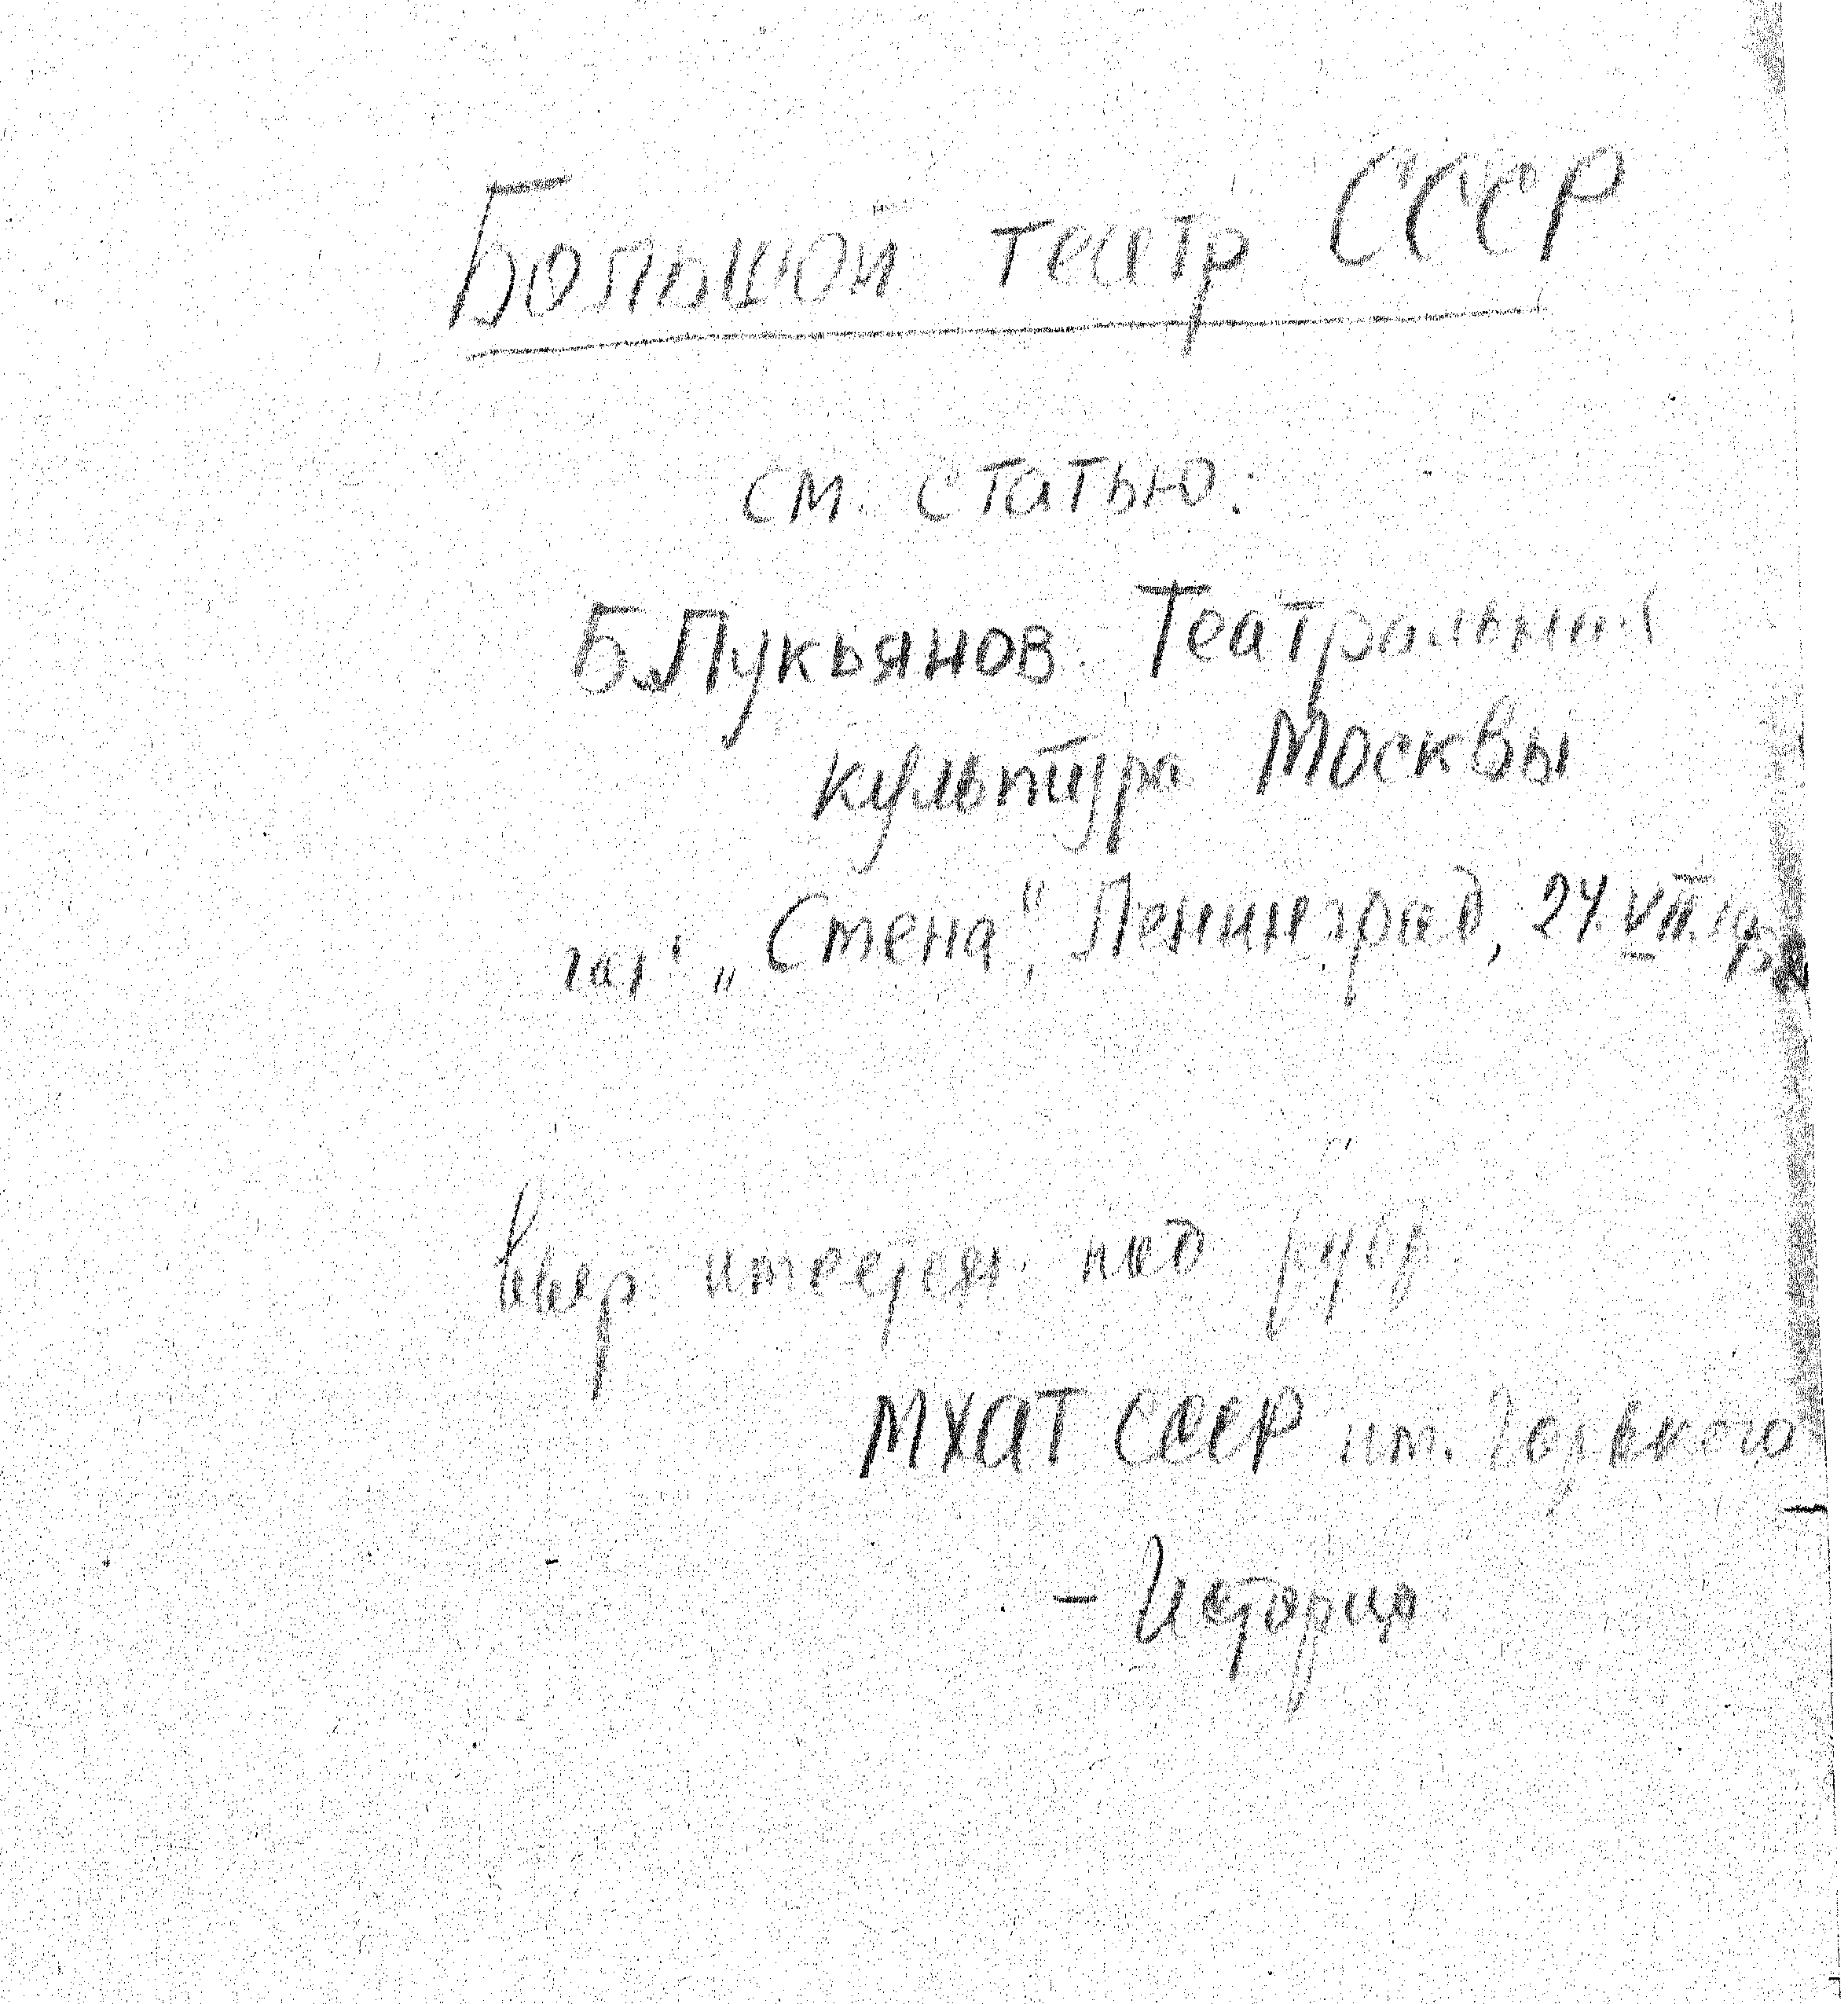 Большой театр СССР
см. статью:
Б. Лукьянов. Театральная
культура Москвы
газ. „Смена“, Ленинград, 24.VII.
имеется под рубр.
МХАТ СССР им. Горького
- История